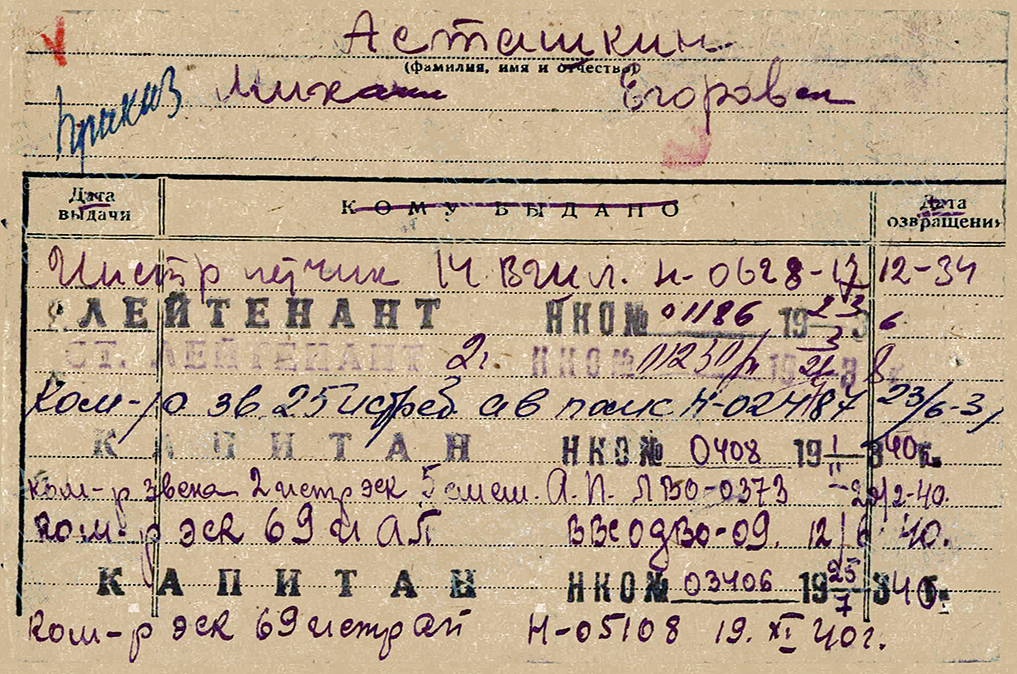 Асташкин
(фамилия, имя и отчество)
Михаил Егорович
Приказ
Дата выдачи
КОМУ ВЫДАНО
Дата возвращения
Инстр летчик 14 ВШЛ. Н-0628-17 12-34
ЛЕЙТЕНАНТ НКО № 01186 19 23/3 36
СТ. ЛЕЙТЕНАНТ 2г. НКО № 01230/п 19 38 г
Ком-р зв 25 истреб ав полк Н-02487 23/6-3
КАПИТАН НКО № 0408 19 1/II 40г.
Ком-р звена 2 истр эск 5 смеш. А.П. ЛВО-0373 -29/2-40.
Ком-р эск 69 И АП ВВС ОДВО-09. 12/6 40.
КАПИТАН НКО № 03406 19 25/7 40 г.
Ком-р эск 69 истр ап Н-05108 19. XI 40г.